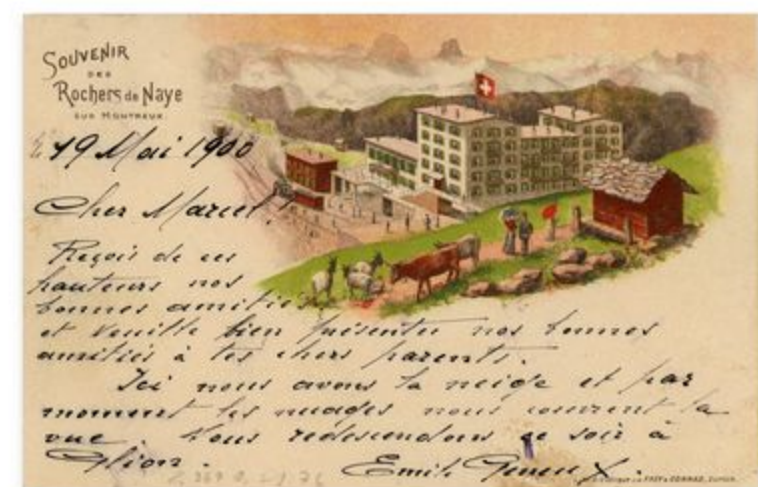 SOUVENIR
DES
Rochers de Naye
SUR MONTREUX
le 19 Mai 1900
Cher Marcel!
Reçois de ces
hauteurs nos
bonnes amitiés
et veuille bien présenter nos bonnes
amitiés à tes chers parents.
Ici nous avons la neige et par
moment les nuages nous couvrent la
vue. Nous redescendons ce soir à
Glion.
Emile